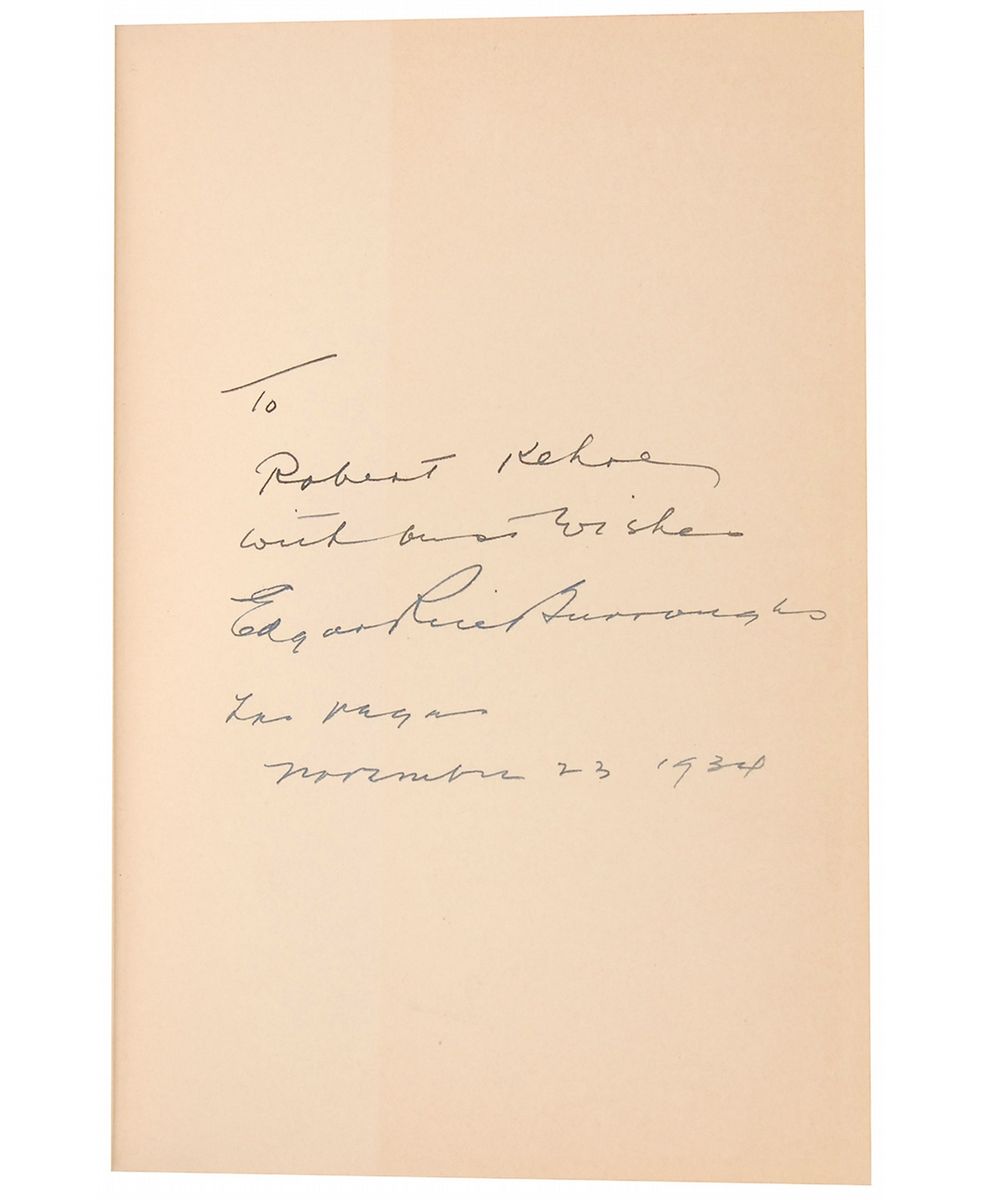 To
Robert Kehoe
with best wishes
Edgar Rice Burroughs
Las Vegas
November 23 1934